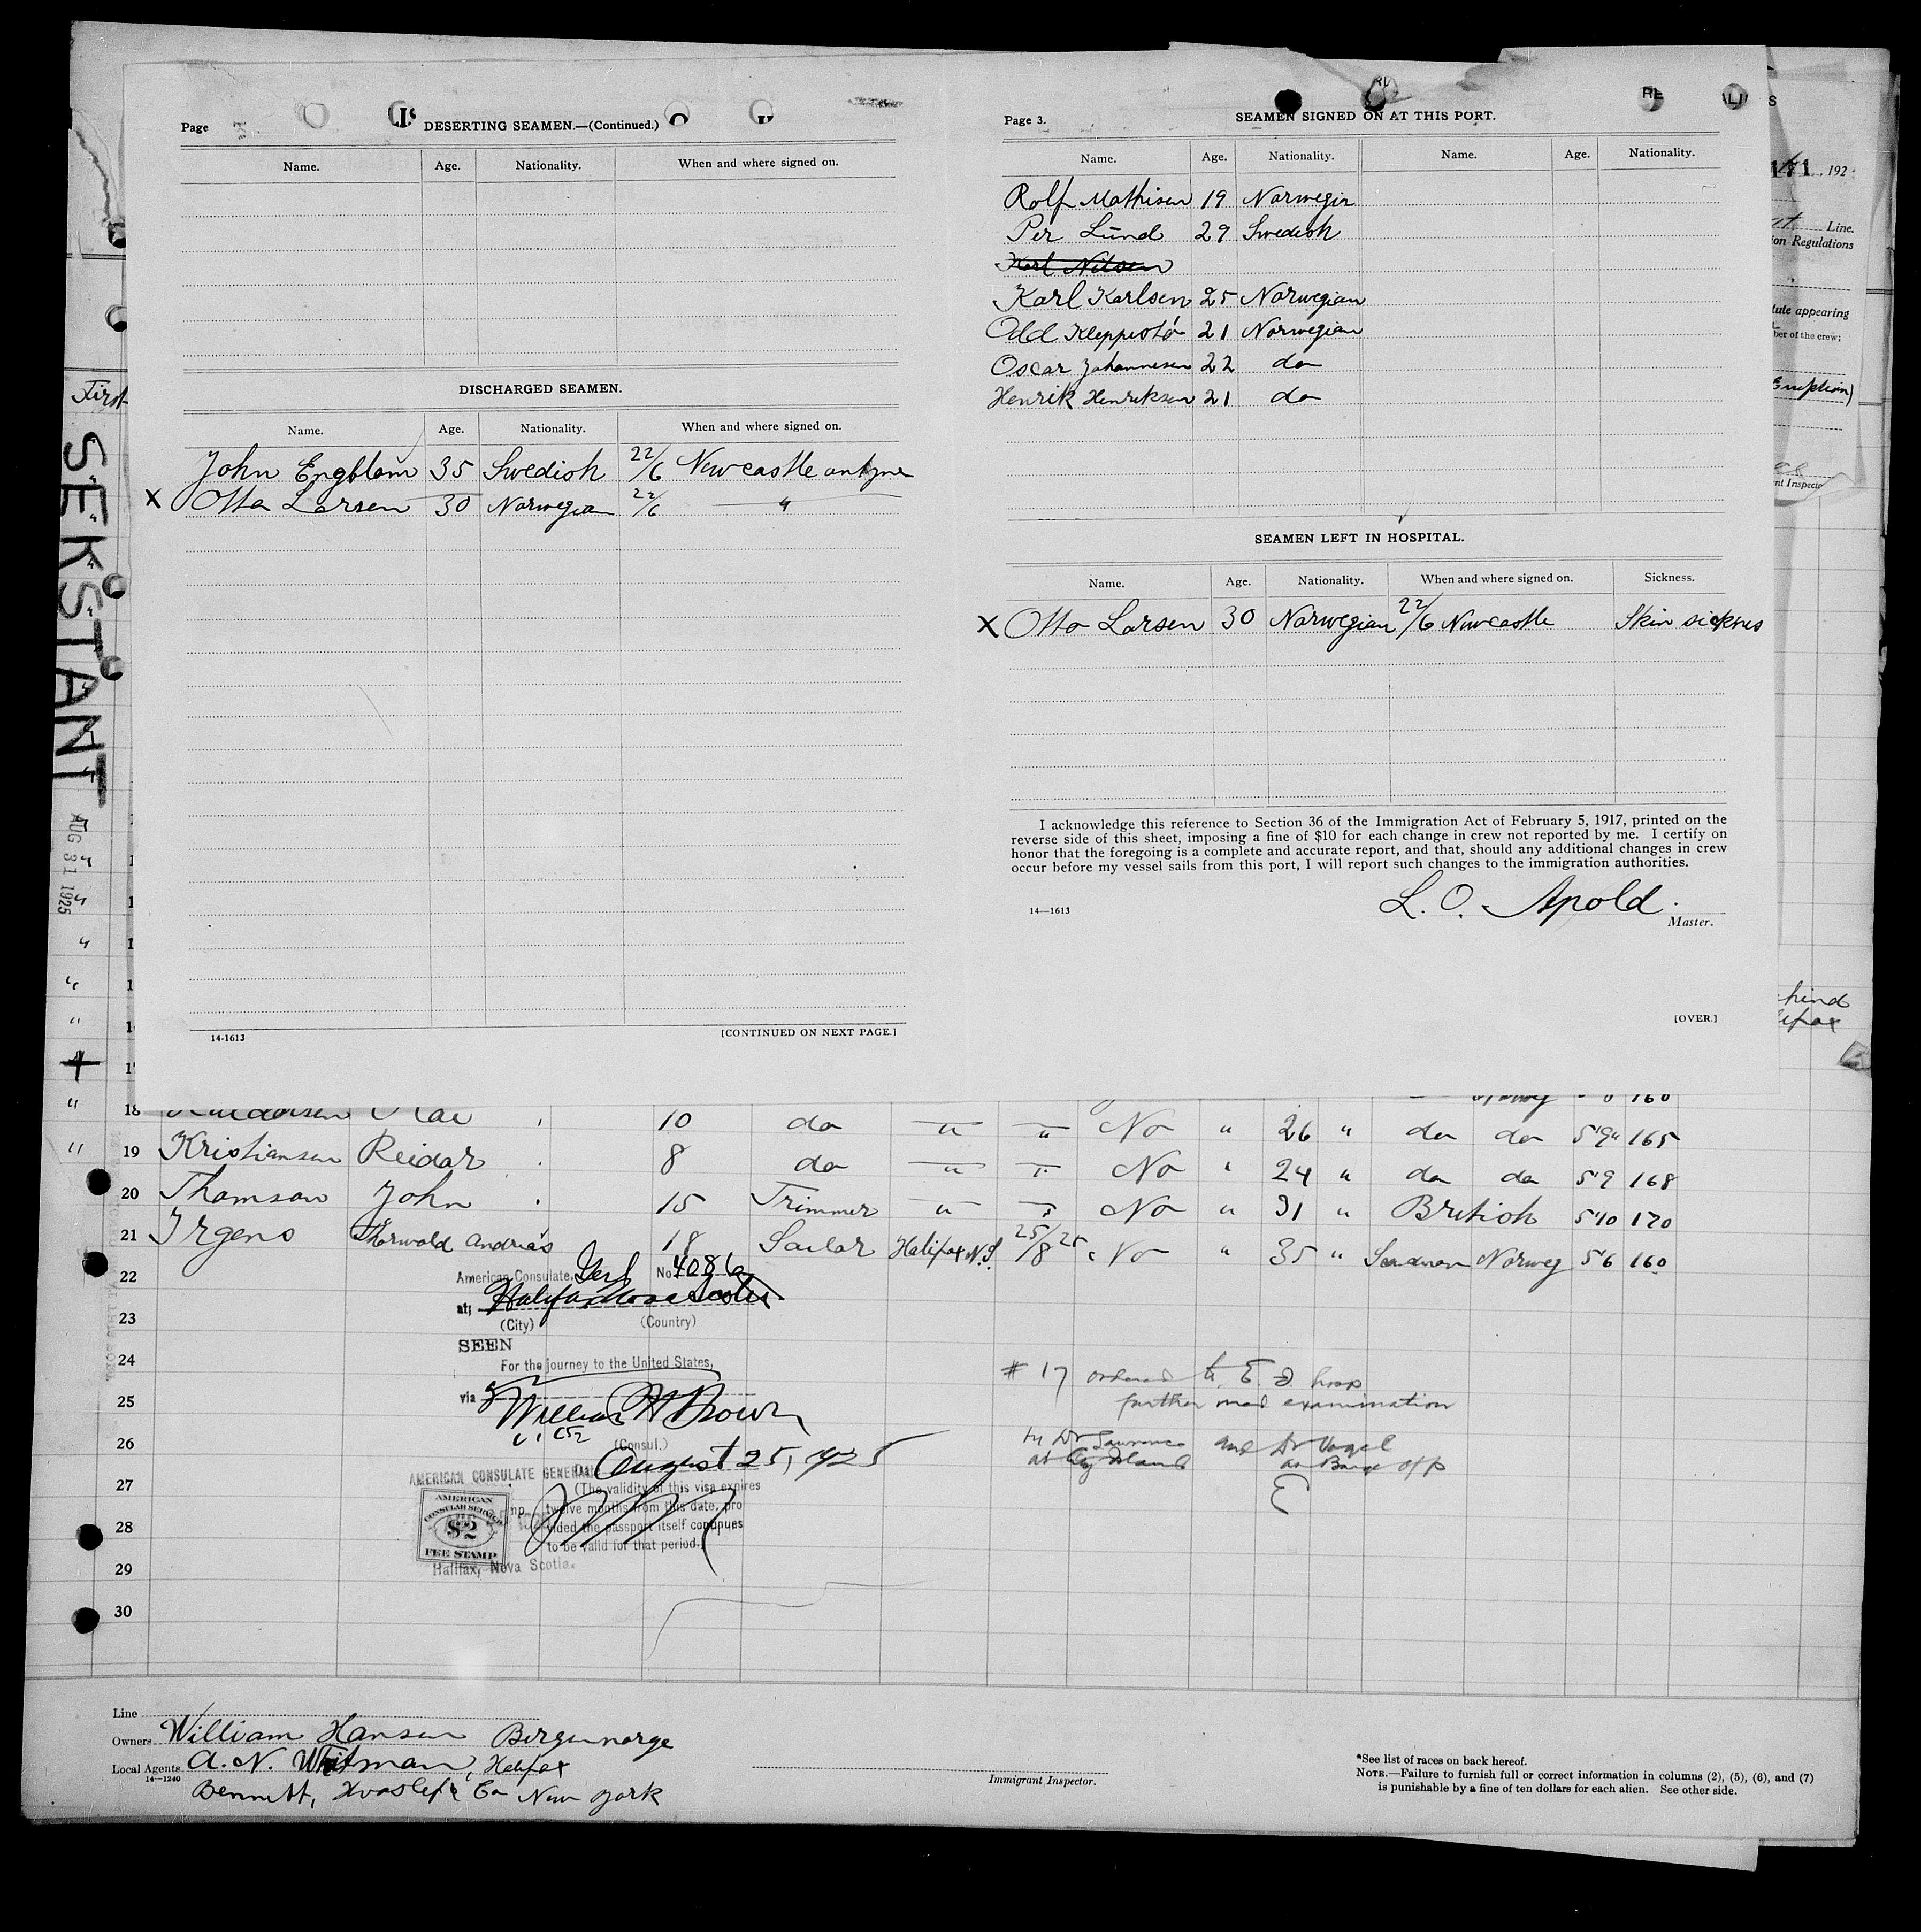 Page
DESERTING SEAMEN.—(Continued.)
Name. Age. Nationality. When and where signed on.
DISCHARGED SEAMEN.
Name. Age. Nationality. When and where signed on.
John Engblom 35 Swedish 22/6 Newcastle on tyne
X Otto Larsen 30 Norwegian 22/6 — "
14-1613
[CONTINUED ON NEXT PAGE.]
Page 3.
SEAMEN SIGNED ON AT THIS PORT.
Name. Age. Nationality. Name. Age. Nationality.
Rolf Mathisen 19 Norwegin
Per Lund 29 Swedish
Karl Nilsen
Karl Karlsen 25 Norwegian
Odd Kleppestø 21 Norwegian
Oscar Johannesen 22 do
Henrik Henriksen 21 do
SEAMEN LEFT IN HOSPITAL.
Name. Age. Nationality. When and where signed on. Sickness.
X Otto Larsen 30 Norwegian 22/6 Newcastle Skin sicknes
I acknowledge this reference to Section 36 of the Immigration Act of February 5, 1917, printed on the
reverse side of this sheet, imposing a fine of $10 for each change in crew not reported by me. I certify on
honor that the foregoing is a complete and accurate report, and that, should any additional changes in crew
occur before my vessel sails from this port, I will report such changes to the immigration authorities.
14—1613
L. O. Apold.
Master.
[OVER.]
192
Line.
ion Regulations
tute appearing
ber of the crew;
nt Inspecto
First
SEKSTANT
AUG 31 1925
18 10 do " " No " 26 " do do 5'9" 165
19 Kristiansen Reidar 8 do " " No " 24 " do do 5'9 168
20 Thomson John 15 Trimmer " " No " 31 " British 5'10 170
21 Irgens Thorwald Andreas 18 Sailor Halifax N.S. 25/8 25 No " 35 " Scandnavn Norweg 5'6 160
22
23
24
25
26
27
28
29
30
American Consulate Genl No. 4086
at Halifax Nova Scotia
(City) (Country)
SEEN
For the journey to the United States,
via
William H Brown
(Consul.)
Date August 25, 1925
(The validity of this visa expires
twelve months from this date, pro
vided the passport itself continues
to be valid for that period.)
AMERICAN CONSULATE GENERAL
AMERICAN
CONSULAR SERVICE
$2
FEE STAMP
Halifax, Nova Scotia.
# 17 ordered to E. I. hosp
further med examination
by Dr Lawrence and Dr Vogel
at Island as Barge off
Line
Owners William Hansen Bergen norge
Local Agents A. N. Whitman, Halifax
14—1240
Bennett, Hvoslef & Co New York
Immigrant Inspector.
*See list of races on back hereof.
NOTE.—Failure to furnish full or correct information in columns (2), (5), (6), and (7)
is punishable by a fine of ten dollars for each alien. See other side.